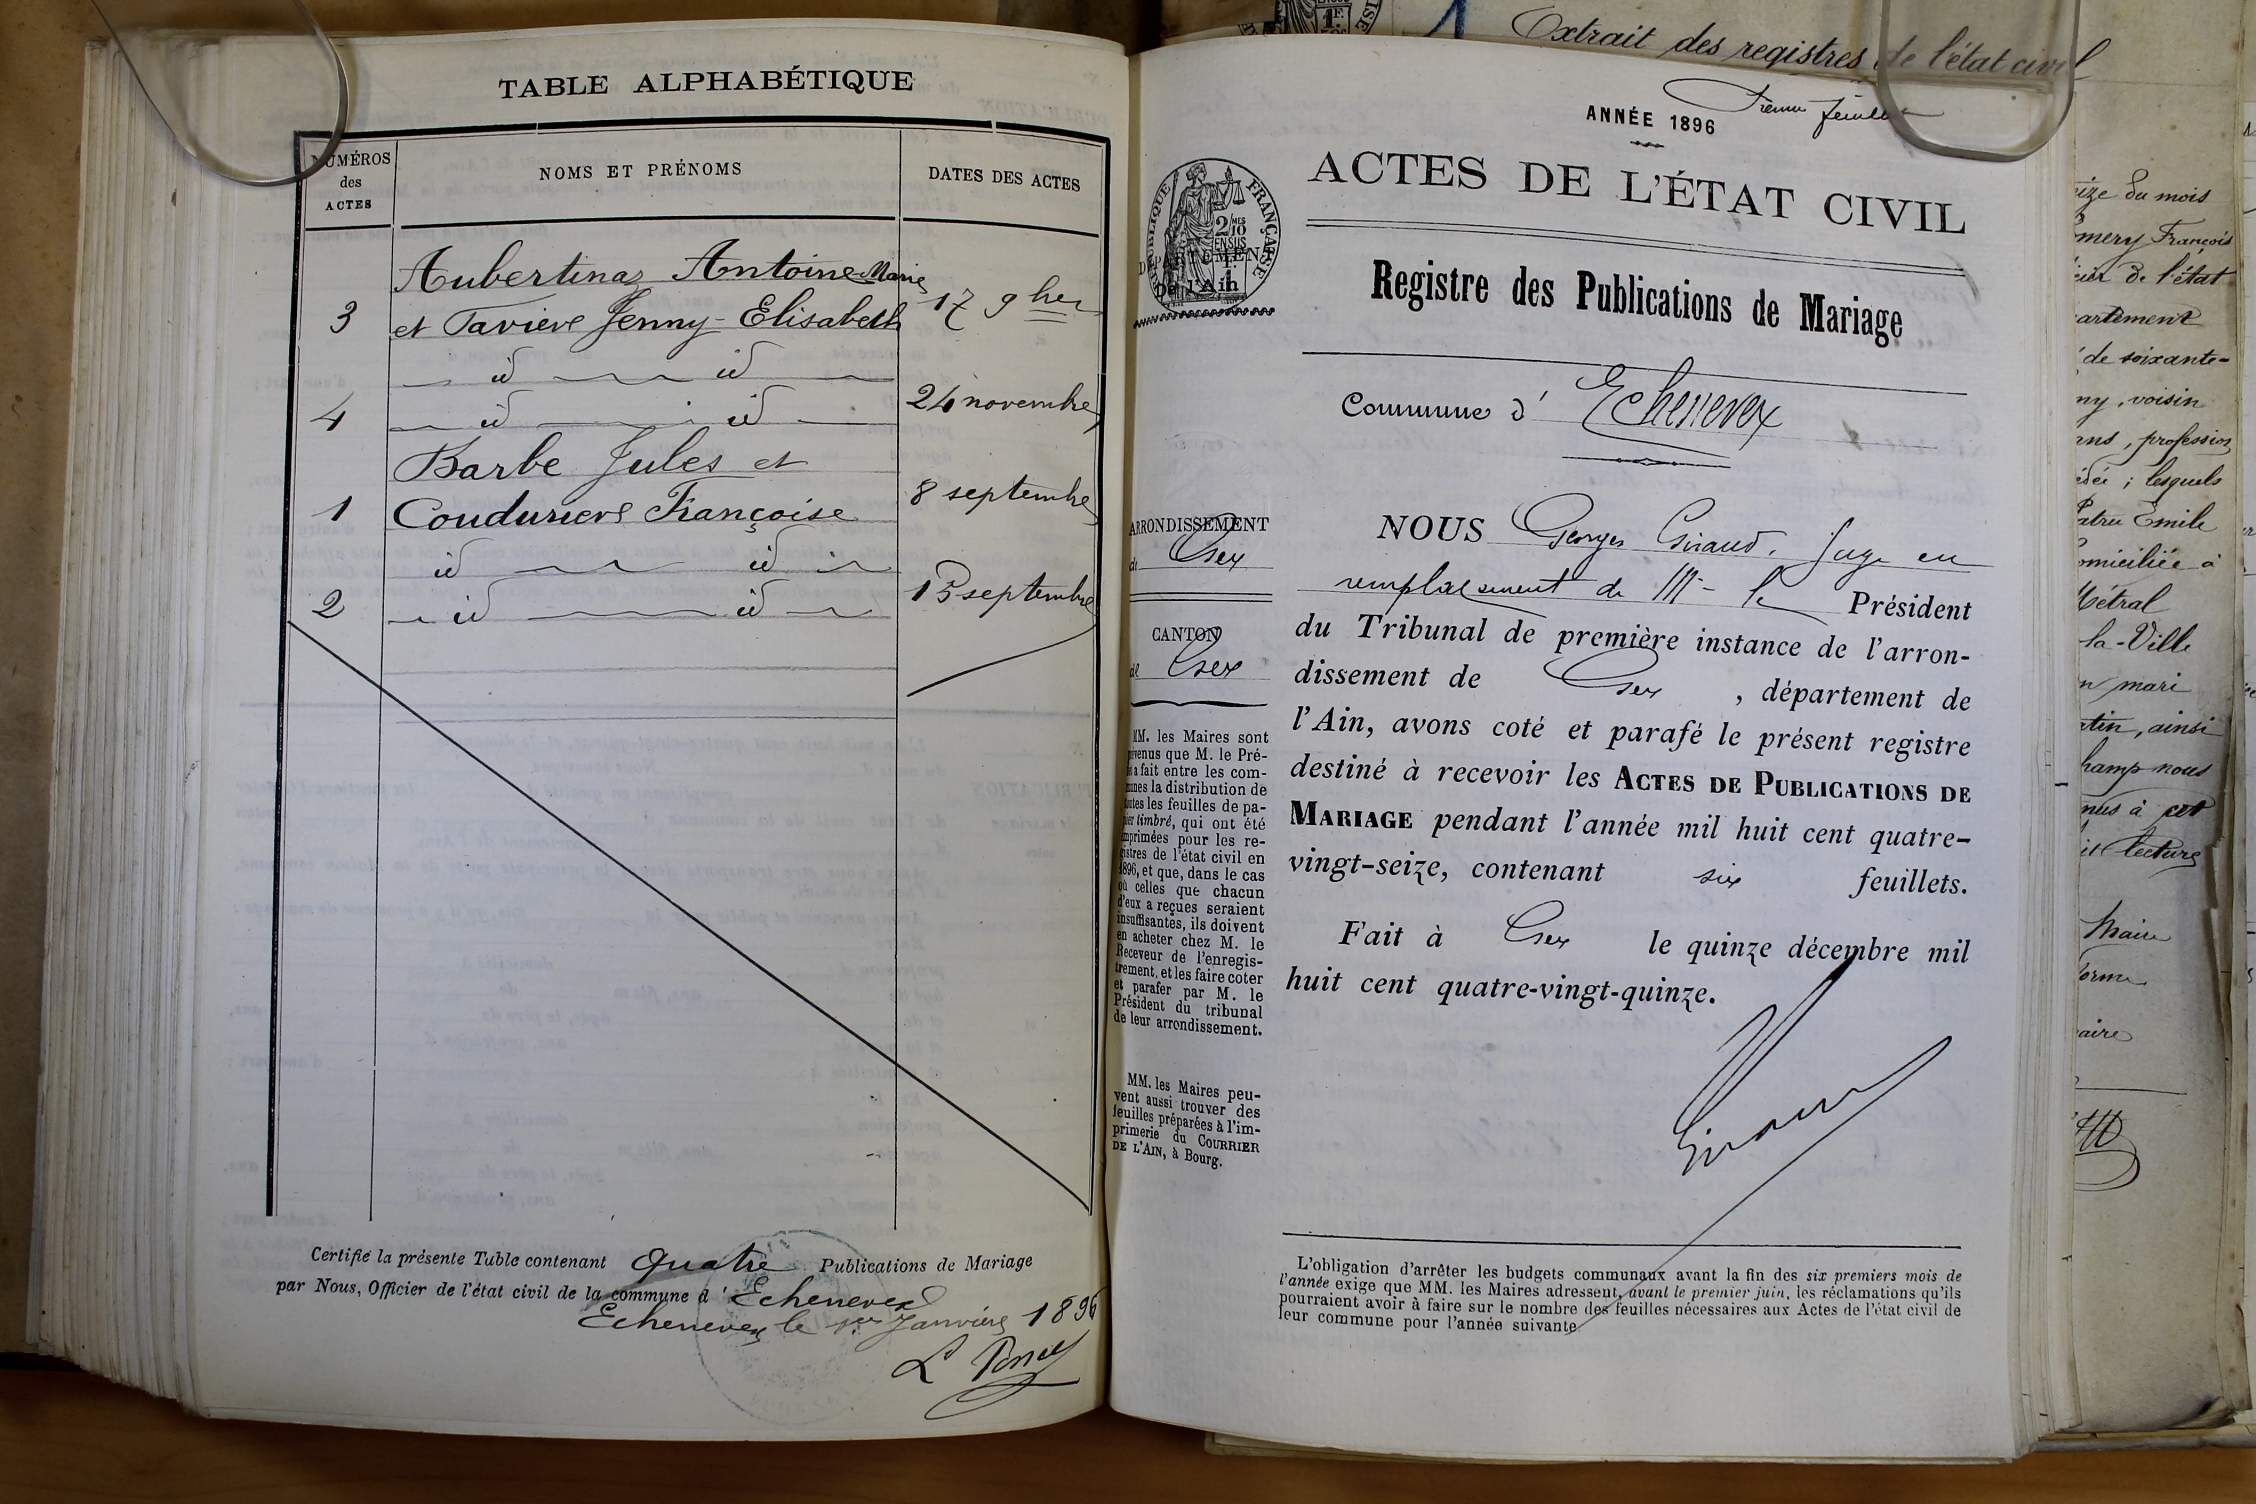 TABLE ALPHABÉTIQUE
NUMÉROS
des
ACTES
NOMS ET PRÉNOMS
DATES DES ACTES
Aubertinaz Antoine Marie
3 et Tavière Jenny-Elisabeth 17 9bre
id id
4 id id 24 novembre
Barbe Jules et
1 Conduriere Françoise 8 septembre
id id
2 id id 15 septembre
Certifié la présente Table contenant Quatre Publications de Mariage
par Nous, Officier de l'état civil de la commune d'Echenevex
Echenevex le 1er Janvier 1896
L
Extrait des registres de l'état civil
ANNÉE 1896
feuillet
ACTES DE L'ÉTAT CIVIL
RÉPUBLIQUE FRANÇAISE
2/10 MES
EN SUS
DÉPARTEMENT
de l'Ain
Registre des Publications de Mariage
Commune d' Echenevex
ARRONDISSEMENT
de Gex
CANTON
de Gex
MM. les Maires sont
prévenus que M. le Pré-
fet a fait entre les com-
munes la distribution de
toutes les feuilles de pa-
pier timbré, qui ont été
imprimées pour les re-
gistres de l'état civil en
1896, et que, dans le cas
où celles que chacun
d'eux a reçues seraient
insuffisantes, ils doivent
en acheter chez M. le
Receveur de l'enregis-
trement, et les faire coter
et parafer par M. le
Président du tribunal
de leur arrondissement.
MM. les Maires peu-
vent aussi trouver des
feuilles préparées à l'im-
primerie du COURRIER
DE L'AIN, à Bourg.
NOUS Georges Giraud, juge en
remplacement de Mr le Président
du Tribunal de première instance de l'arron-
dissement de Gex, département de
l'Ain, avons coté et parafé le présent registre
destiné à recevoir les ACTES DE PUBLICATIONS DE
MARIAGE pendant l'année mil huit cent quatre-
vingt-seize, contenant six feuillets.
Fait à Gex le quinze décembre mil
huit cent quatre-vingt-quinze.
Giraud
L'obligation d'arrêter les budgets communaux avant la fin des six premiers mois de
l'année exige que MM. les Maires adressent, avant le premier juin, les réclamations qu'ils
pourraient avoir à faire sur le nombre des feuilles nécessaires aux Actes de l'état civil de
leur commune pour l'année suivante
du mois
François
de l'état
de soixante-
ny, voisin
profession
; lesquels
Emile
à
la-Ville
mari
, ainsi
nous
à cet
lecture
Maire